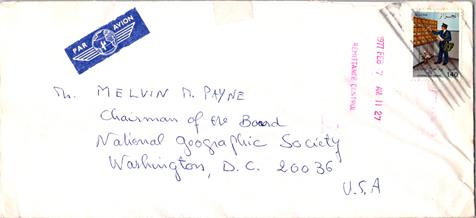 PAR AVION
1977 FEB 7 AM 11 27
REMITTANCE CONTROL
140
Mr. MELVIN M. PAYNE
Chairman of the Board
National Geographic Society
Washington, D.C. 20036
U.S.A